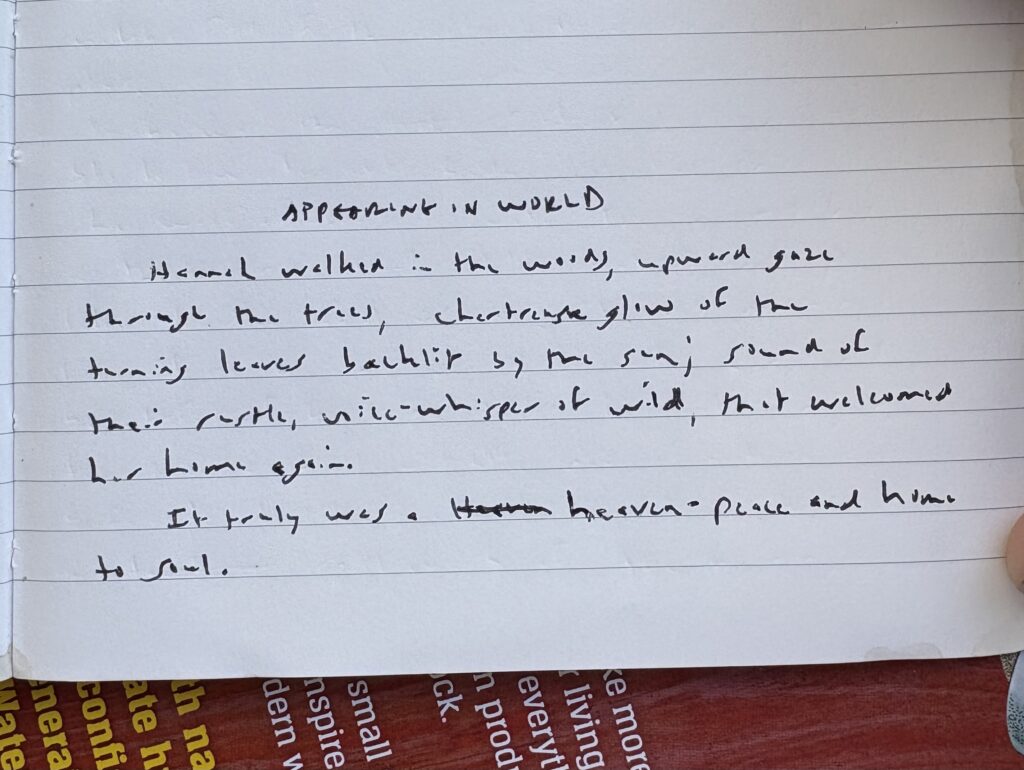 APPEARING IN WORLD
Hannah walked in the woods, upward gaze
through the trees, chartreuse glow of the
turning leaves backlit by the sun; sound of
their rustle, voice-whisper of wild, that welcomed
her home again.
It truly was a Heaven heaven-place and home
to soul.
th na
ate h
confi
nera
wate
small
nspire
dern w
ock.
ke more
r living
everyt
n prod